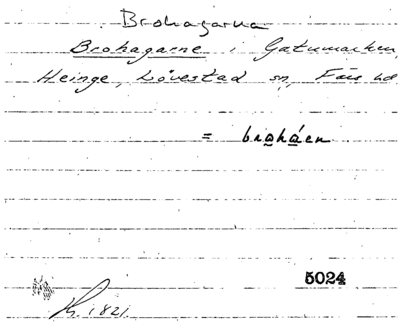 Brohagarna
Brohagarne i Gatumarken,
Heinge, Lövestad sn, Färs hd
= braháen
5024
K. 1821.